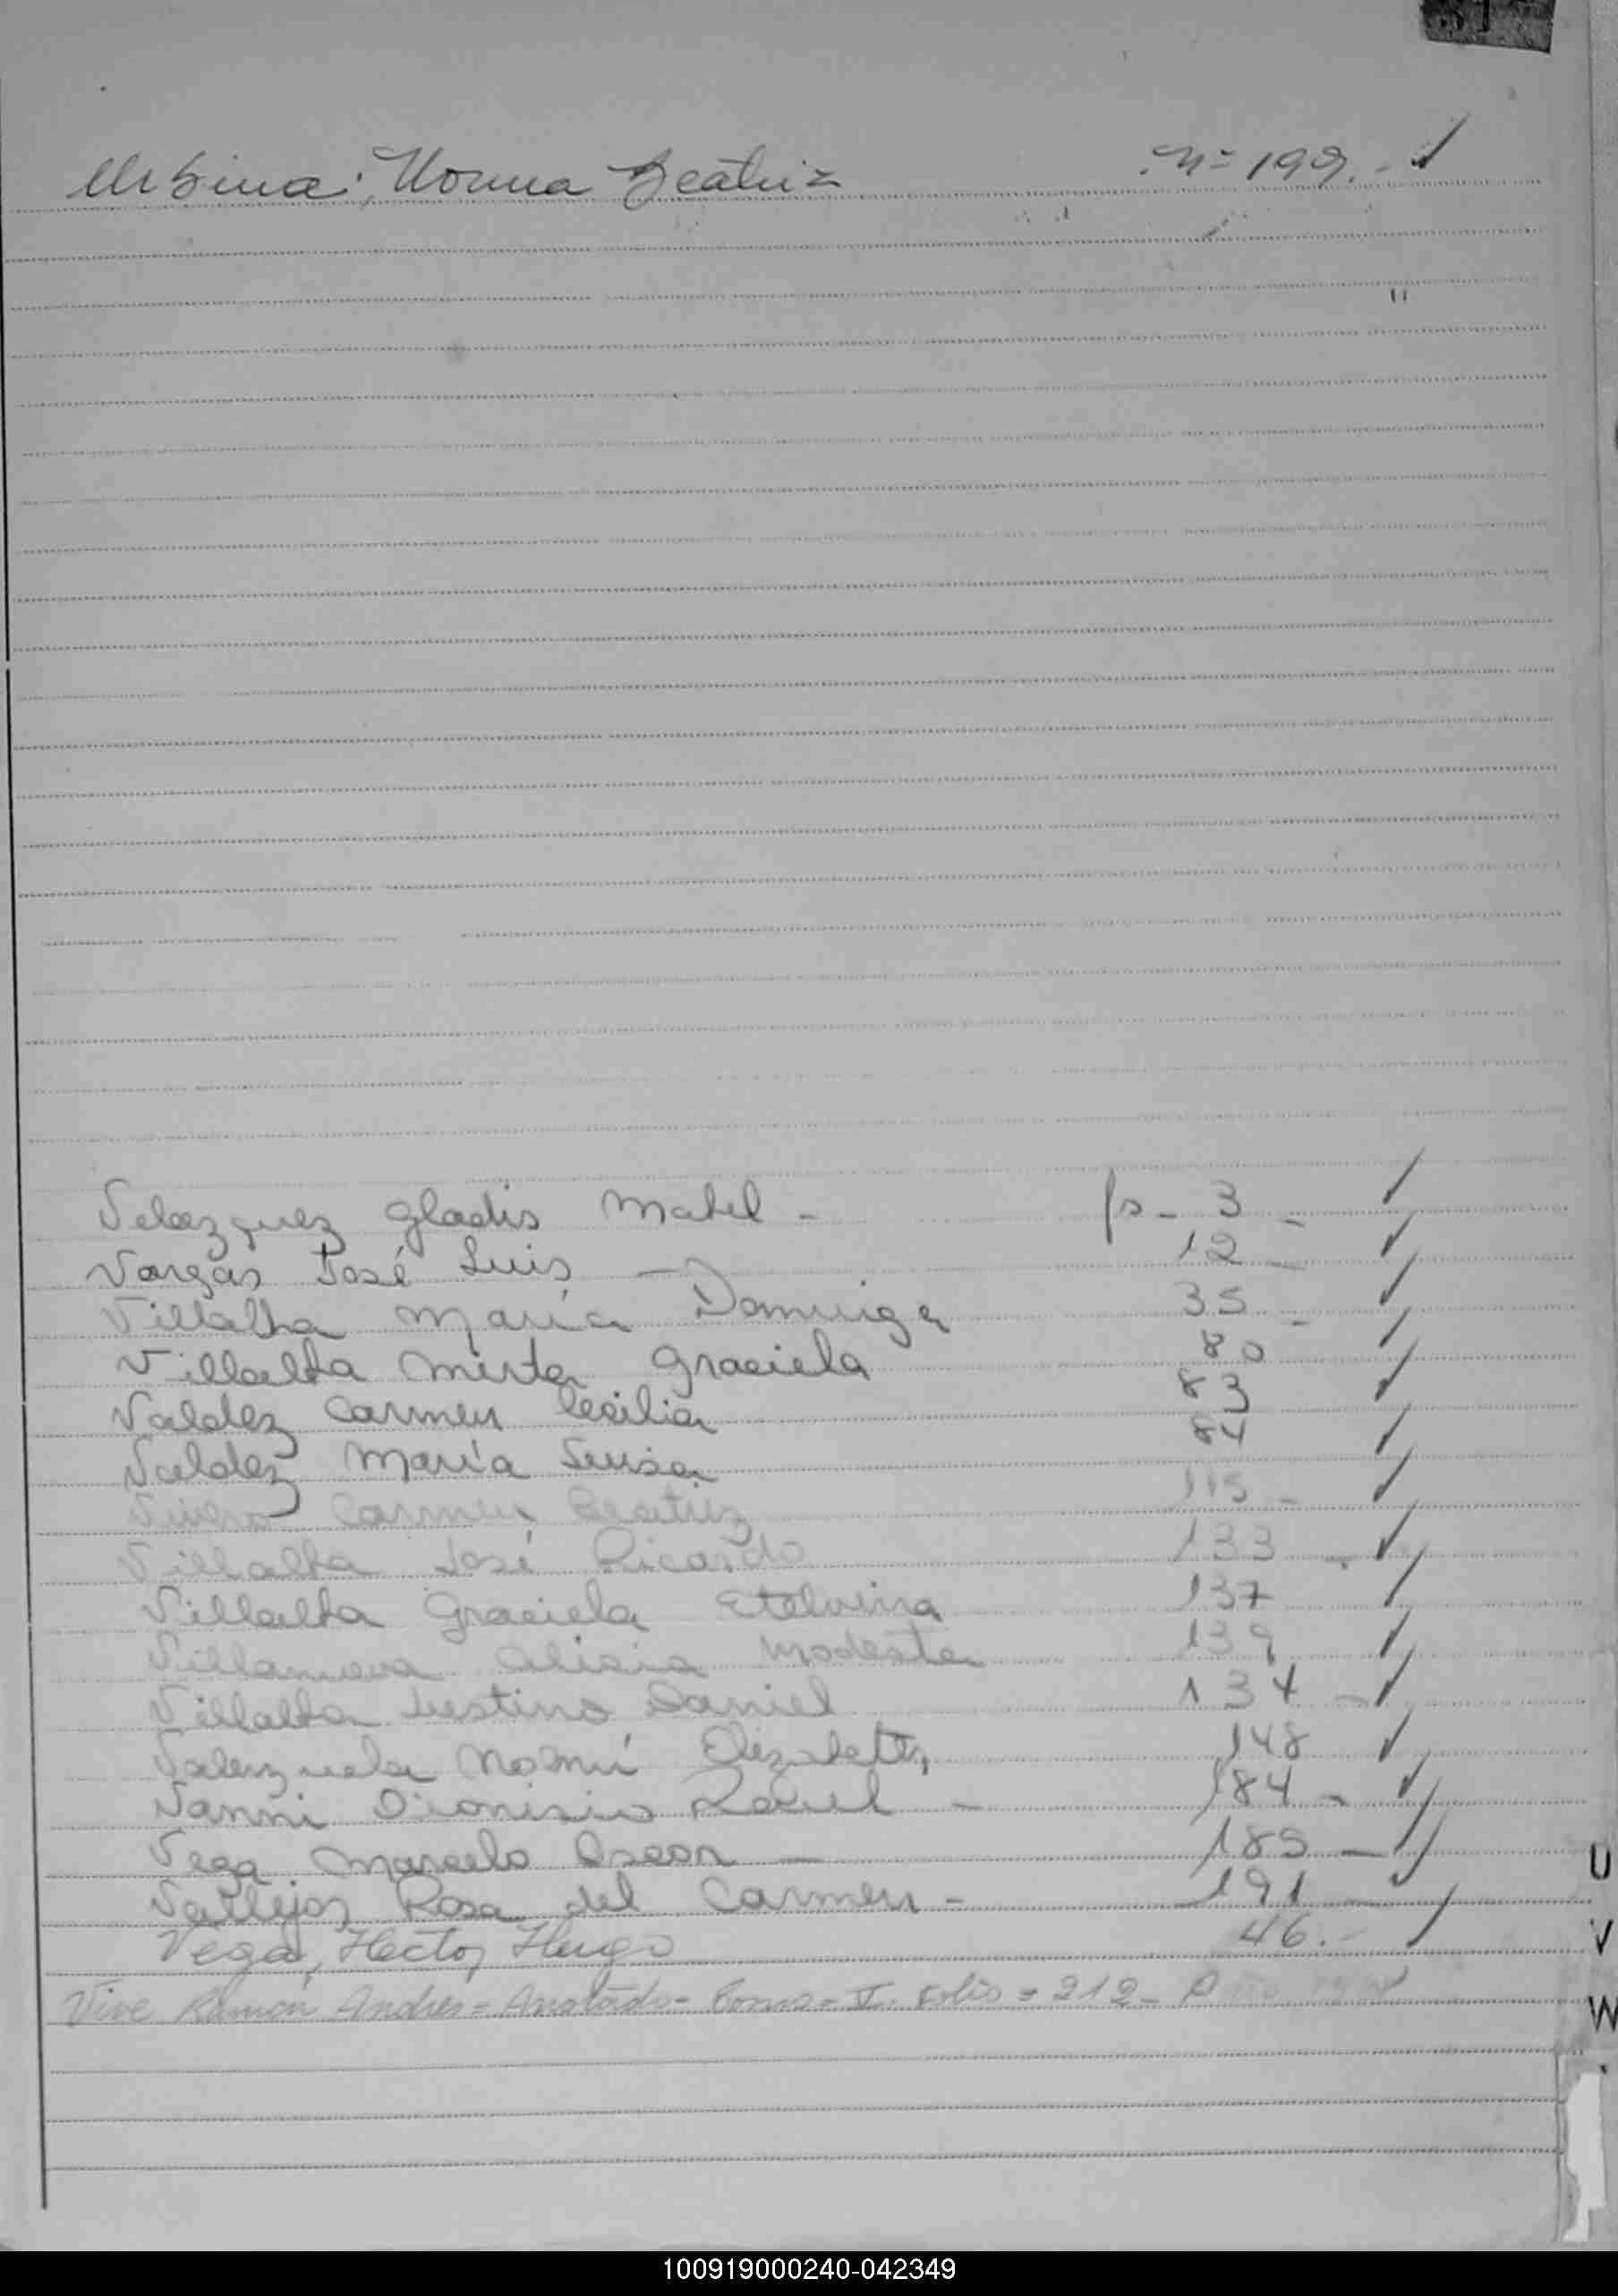 Urbina, Norma Beatriz n= 199.- ✓
"
Velazquez Gladis Mabel - fs - 3 - ✓
Vargas José Luis - 12 - ✓
Villalba María Dominga 35 - ✓
Villalba Mirta Graciela 80 ✓
Valdez Carmen Cecilia 83 ✓
Valdez María Luisa 84 ✓
Carmen Beatriz 115 - ✓
Villalba José Ricardo 133 - ✓
Villalba Graciela Etelvina 137 ✓
Villanueva Alicia Modesta 139 ✓
Villalba Daniel 134 - ✓
Valenzuela Noemí Elizabeth 148 ✓
Vanni Dionisio Raúl - 184 - ✓
Vega Marcelo Oscar - 185 - ✓
Vallejos Rosa del Carmen - 191 - ✓
U
Vega, Hector Hugo 46.- ✓
V
Vive Ramón Andres = Anotado - Tomo = I. Folio = 212 -
W
100919000240-042349